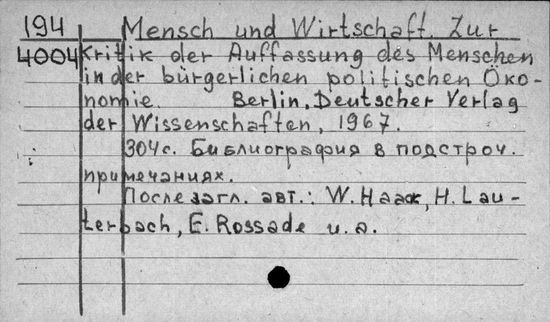 194 Mensch und Wirtschaft. Zur
4004 Kritik der Auffassung des Menschen
in der bürgerlichen politischen Öko-
nomie. Berlin, Deutscher Verlag
der Wissenschaften, 1967.
304с. Библиография в подстроч.
примечаниях.
После загл. авт.: W. Haack, H. Lau-
terbach, E. Rossade u. a.